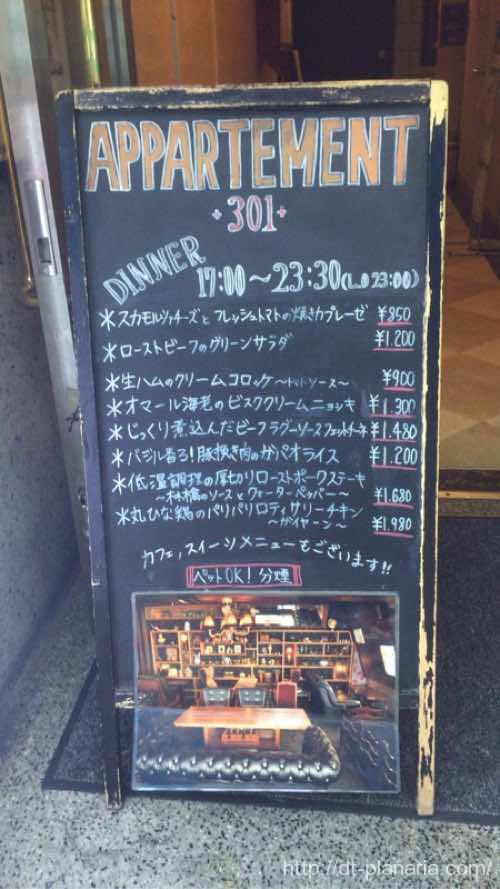 APPARTEMENT
301
DINNER
17:00〜23:30(L.O 23:00)
*スカモルツァチーズとフレッシュトマトの焼きカプレーゼ ¥850
*ローストビーフのグリーンサラダ ¥1.200
*生ハムのクリームコロッケ〜トマトソース〜 ¥900
*オマール海老のビスククリームニョッキ ¥1.300
*じっくり煮込んだビーフラグーソースフェットチーネ ¥1.480
*バジル香る!豚挽き肉のガパオライス ¥1.200
*低温調理の厚切りローストポークステーキ
〜和橘のソースとウォーターペッパー〜 ¥1.680
*丸ひな鶏のパリパリロティサリーチキン
〜ガイヤーン〜 ¥1.980
カフェ,スイーツメニューもございます!!
ペットOK!分煙
http://dt-planaria.com/